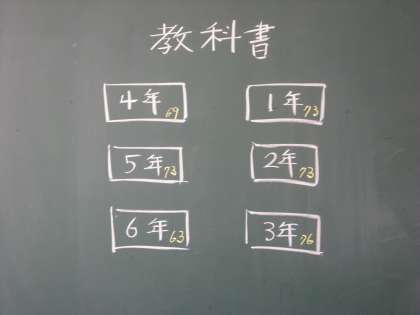 教科書
4年 69
1年 73
5年 73
2年 73
6年 63
3年 76